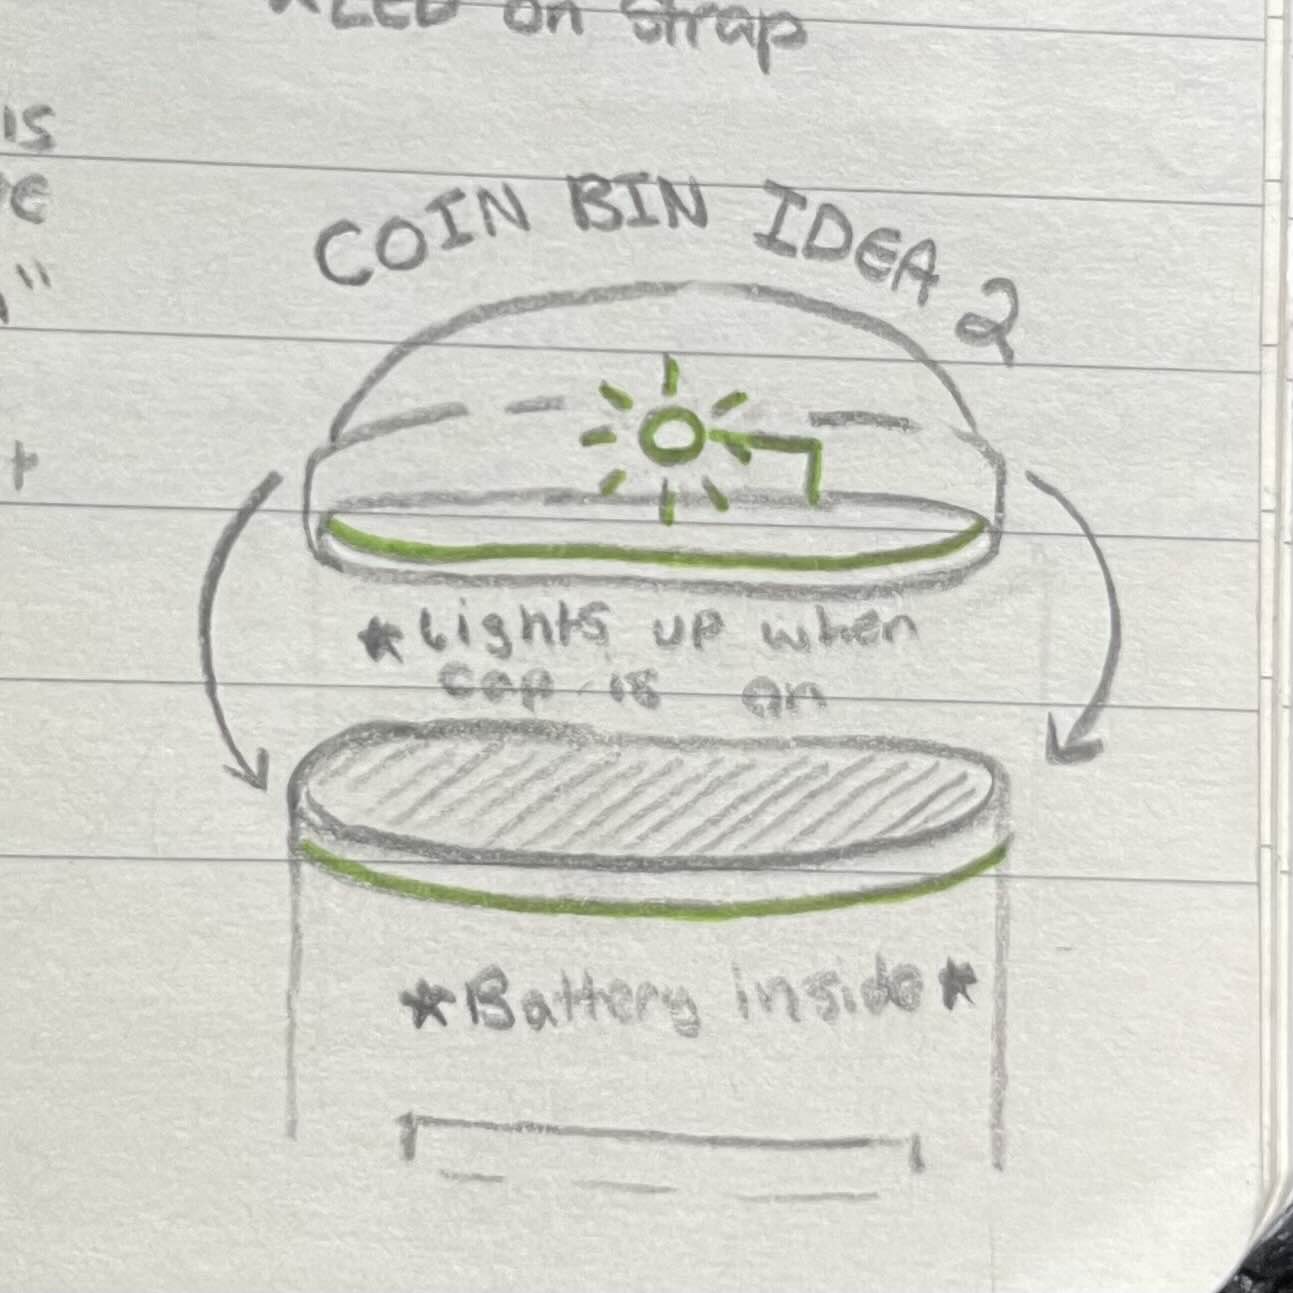 *LED on Strap
is
COIN BIN IDEA 2
*Lights up when
cap is on
*Battery inside*